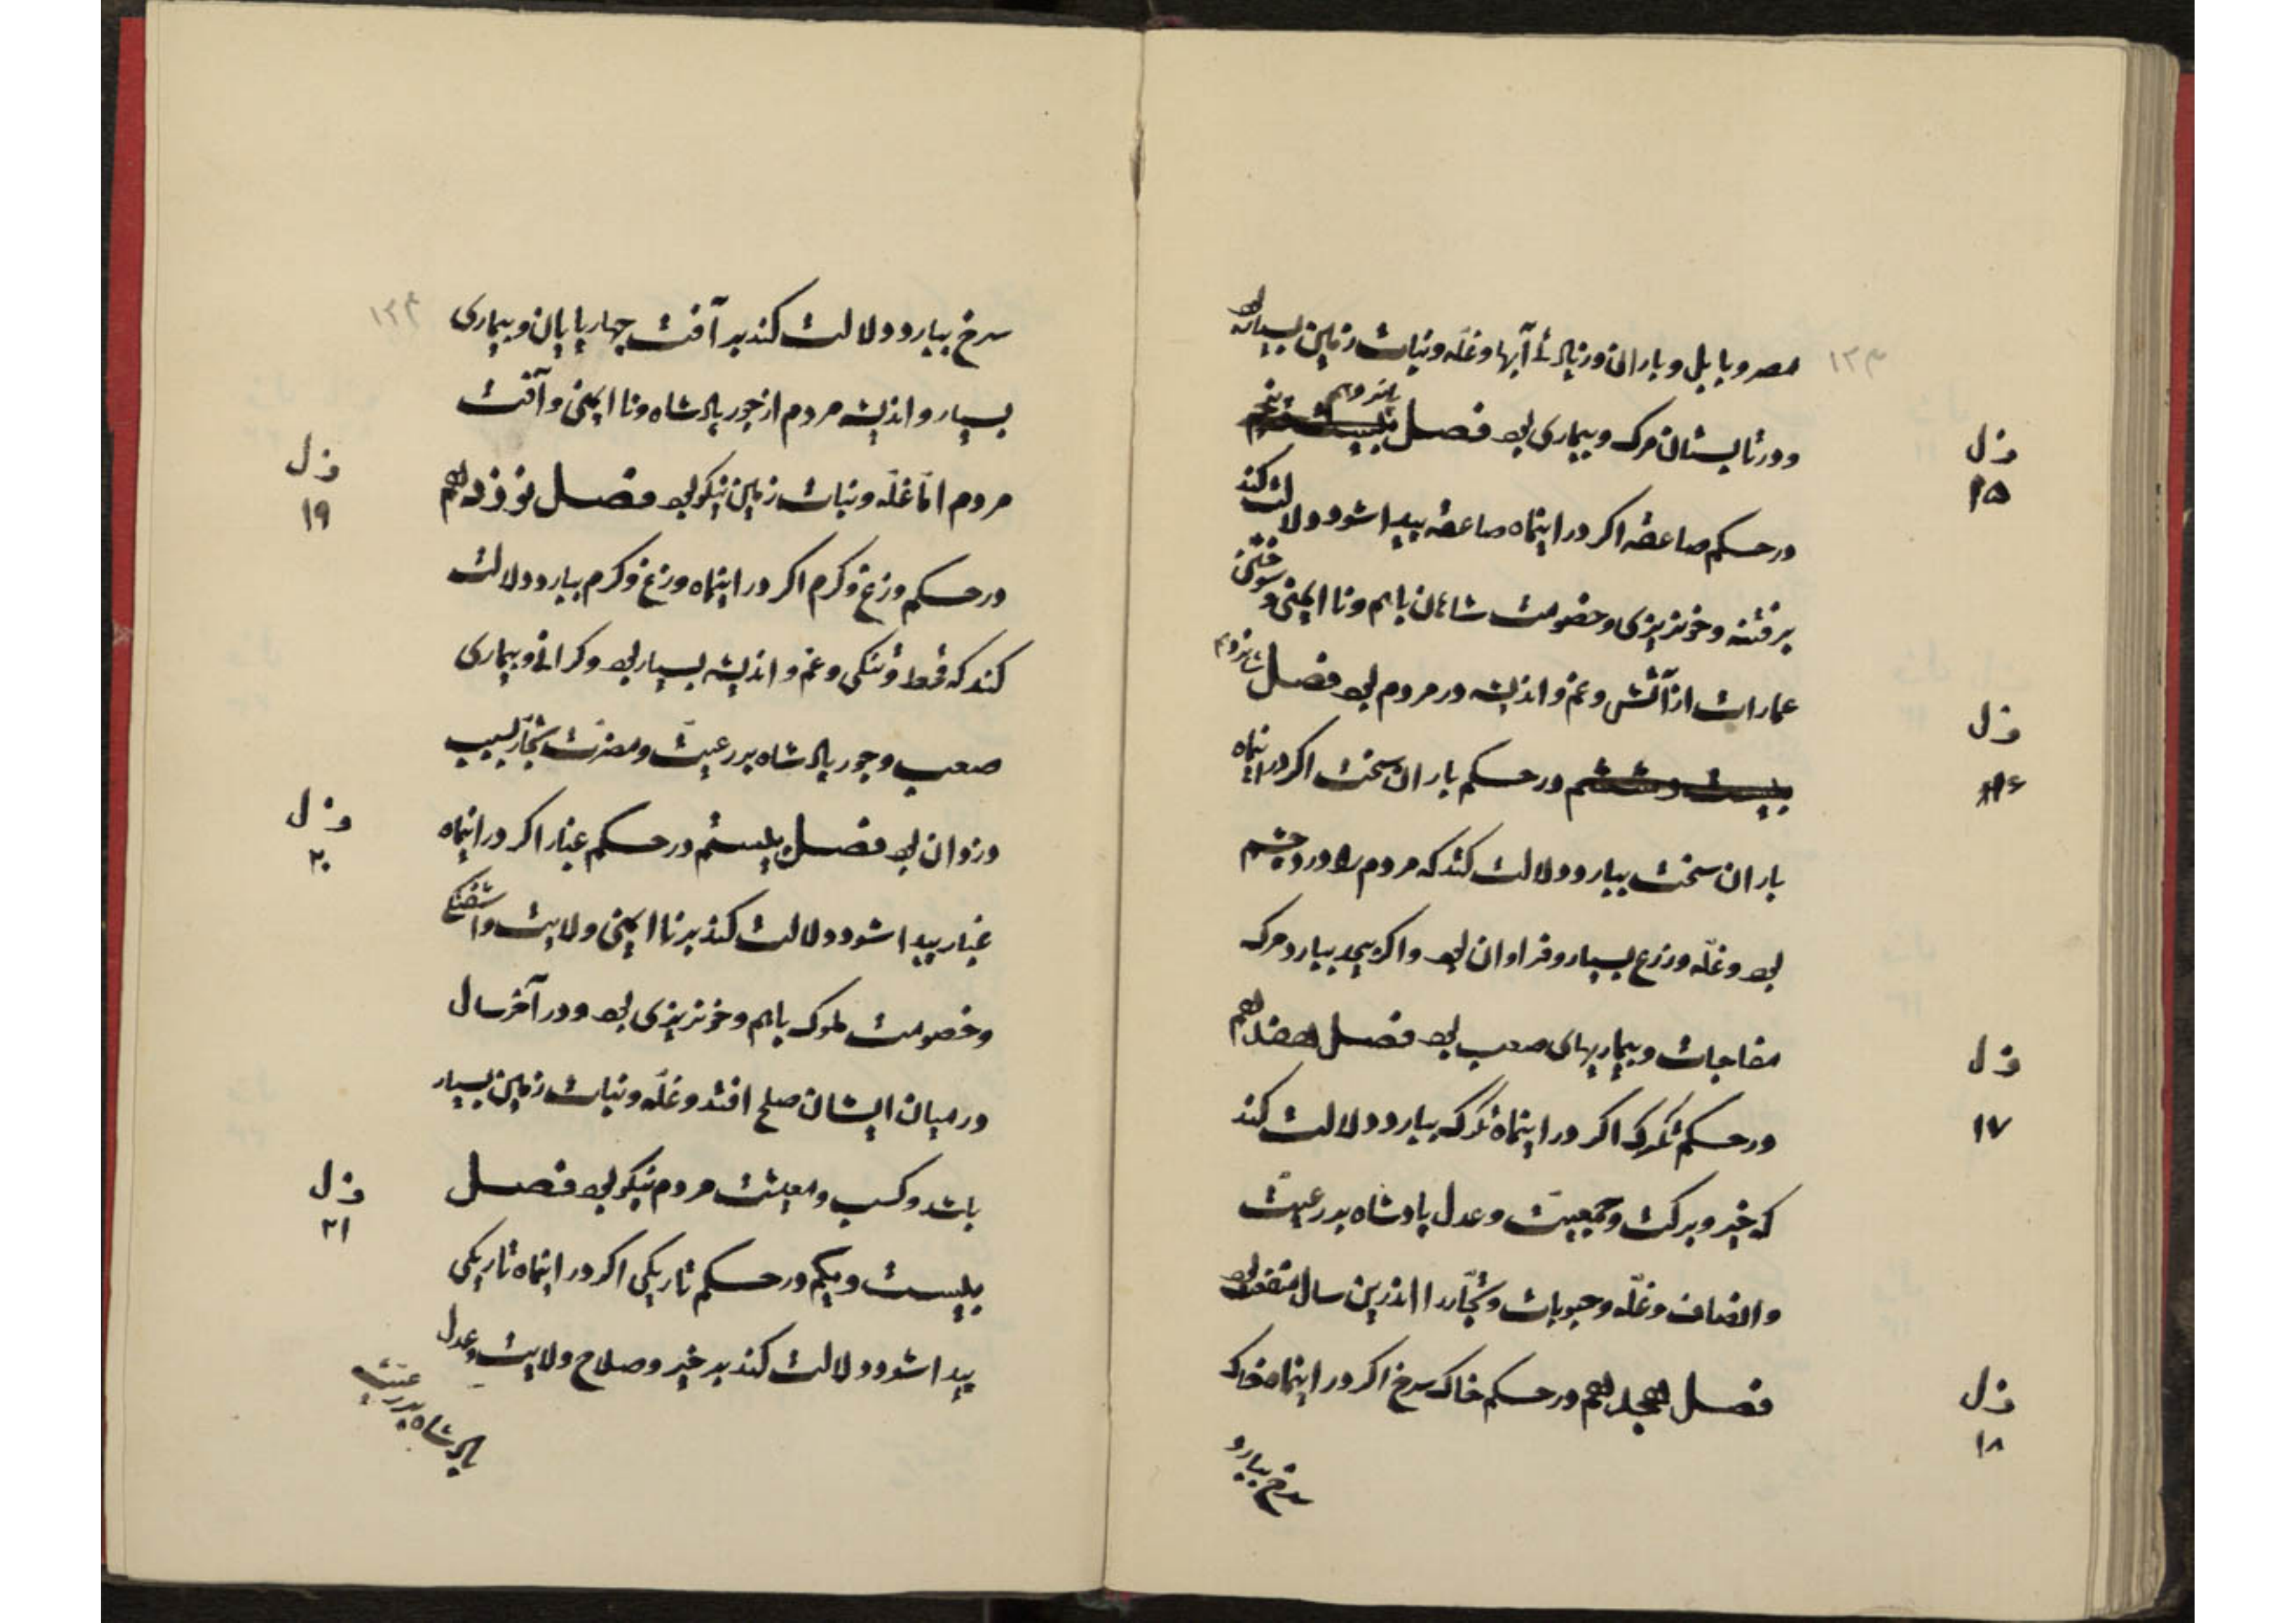 ۱۲۳
مصر و بابل و باران و زیادتی آبها و غلّه و نبات زمین بسیار بود
و در تابستان مرک و بیماری بود فصل پانزدهم
ف ل
۱۵
در حکم صاعقه اکر در اینماه صاعقه پیدا شود دلالت کند
بر فتنه و خونریزی و خصومت شاهان باهم و نا ایمنی و سوختن
عمارات از آتش و غم و اندیشه در مردم بود فصل شانزدهم
ف ل
۱۶
بیست و ششم در حکم باران سخت اکر در اینماه
باران سخت ببارد دلالت کند که مردم را درد چشم
بود و غلّه و زرع بسیار و فراوان بود و اکر بیحد ببارد مرک
مفاجات و بیماریهای صعب بود فصل هفدهم
ف ل
۱۷
در حکم تکرک اکر در اینماه تکرک ببارد دلالت کند
که خیر و برکت و جمعیّت و عدل پادشاه بر رعیّت
و انصاف و غلّه و حبوبات و تجّار را اندرین سال منفعت بود
فصل هجدهم در حکم خاک سرخ اکر در اینماه خاک
ف ل
۱۸
سرخ ببارد
۱۲۴
سرخ ببارد دلالت کند بر آفت چهارپایان و بیماری
بسیار و اندیشه مردم از جور پادشاه و نا ایمنی و آفت
مردم امّا غلّه و نبات زمین نیکو بود فصل نوزدهم
ف ل
۱۹
در حکم وزغ و کرم اکر در اینماه وزغ و کرم ببارد دلالت
کند که قحط و تنکی و غم و اندیشه بسیار بود و کرانی و بیماری
صعب و جور پادشاه بر رعیّت و مضرّت تجّار بسبب
دزدان بود فصل بیستم در حکم غبار اکر در اینماه
ف ل
۲۰
غبار پیدا شود دلالت کند بر نا ایمنی ولایت و آشفتکی
و خصومت ملوک باهم و خونریزی بود و در آخر سال
در میان ایشان صلح افتد و غلّه و نبات زمین بسیار
باشد و کسب و معیشت مردم نیکو بود فصل
ف ل
۲۱
بیست و یکم در حکم تاریکی اکر در اینماه تاریکی
پیدا شود دلالت کند بر خیر و صلاح ولایت و عدل
پادشاه بر رعیّت